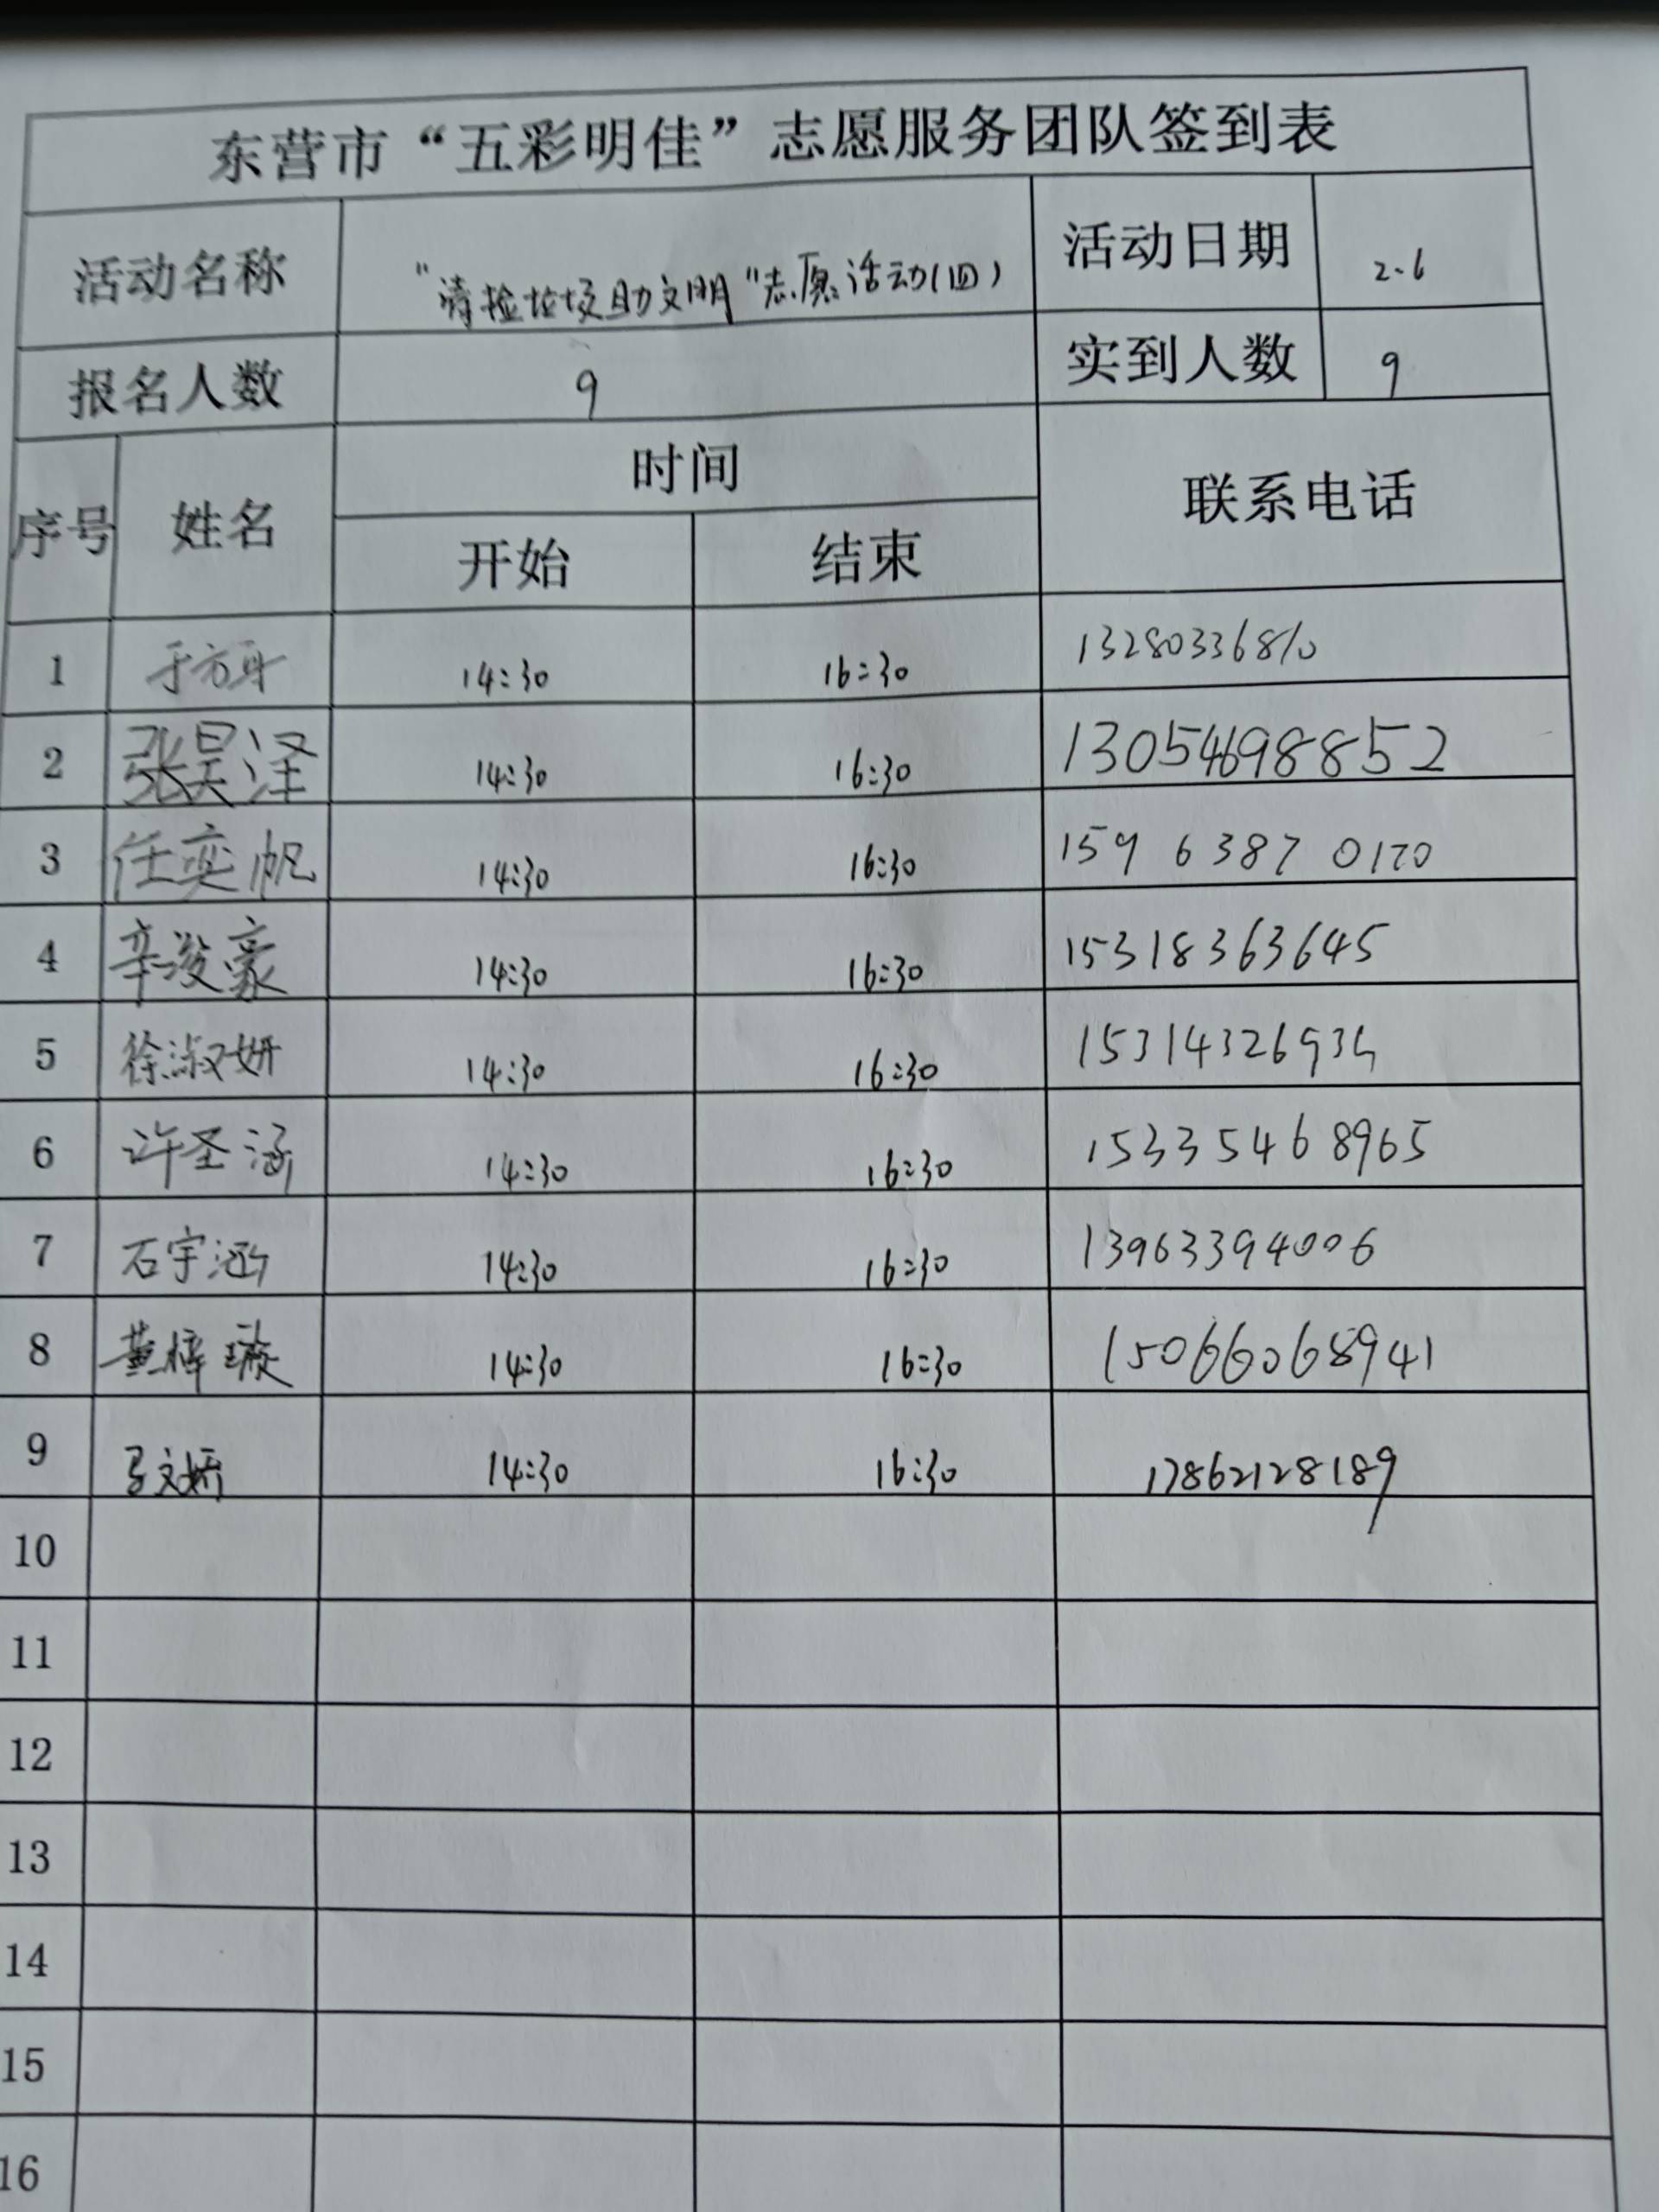 东营市“五彩明佳”志愿服务团队签到表
活动名称 “清捡垃圾助文明”志愿活动(四) 活动日期 2.6
报名人数 9 实到人数 9
序号 姓名 时间 联系电话
开始 结束
1 14:30 16:30 13280336810
2 张昊泽 14:30 16:30 13054698852
3 任奕帆 14:30 16:30 159 6387 0170
4 辛浚豪 14:30 16:30 15318363645
5 徐淑妍 14:30 16:30 15314326934
6 许圣涵 14:30 16:30 15335468965
7 石宇涵 14:30 16:30 13963394006
8 黄梓璇 14:30 16:30 15066068941
9 马文娇 14:30 16:30 17862128189
10
11
12
13
14
15
16